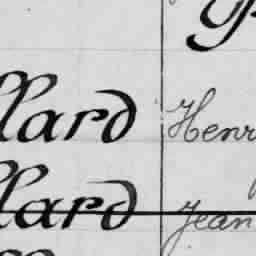 llard Henr
llard Jean